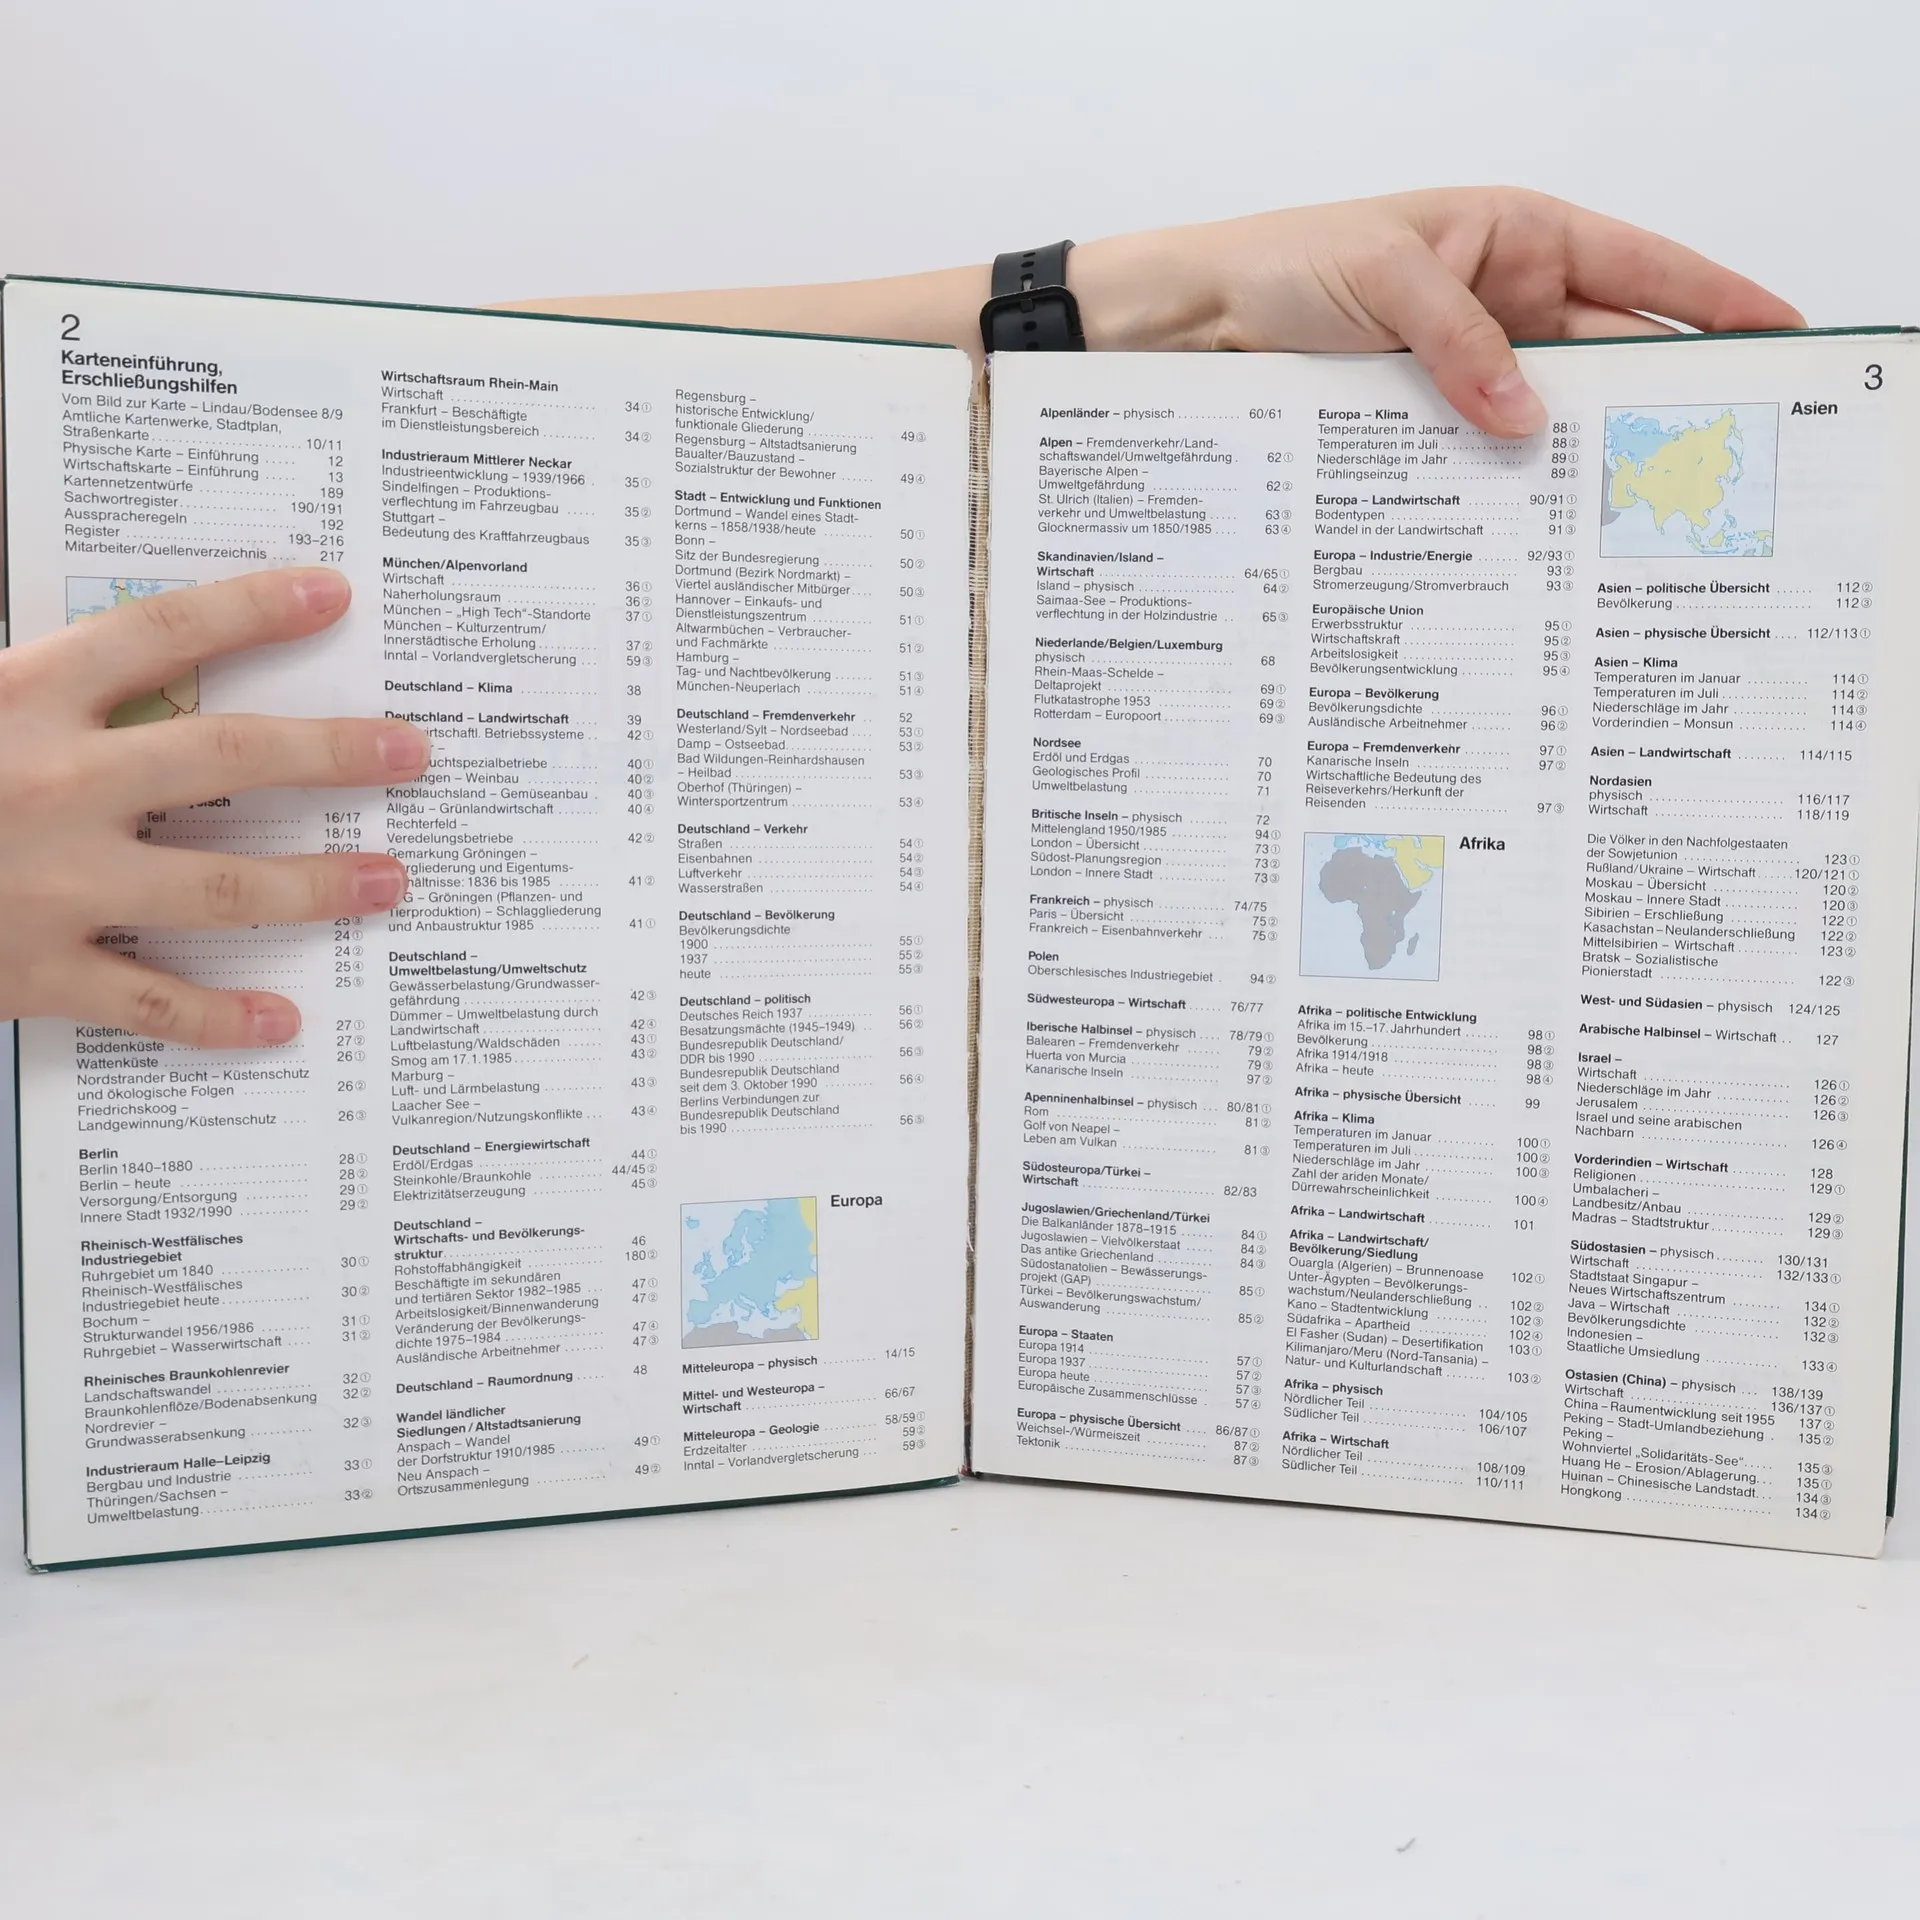 2
Karteneinführung,
Erschließungshilfen
Vom Bild zur Karte – Lindau/Bodensee 8/9
Amtliche Kartenwerke, Stadtplan,
Straßenkarte 10/11
Physische Karte – Einführung 12
Wirtschaftskarte – Einführung 13
Kartennetzentwürfe 189
Sachwortregister 190/191
Ausspracheregeln 192
Register 193–216
Mitarbeiter/Quellenverzeichnis 217
Teil 16/17
18/19
20/21
25③
24①
24②
25④
25⑤
27①
Boddenküste 27②
Wattenküste 26①
Nordstrander Bucht – Küstenschutz
und ökologische Folgen 26②
Friedrichskoog –
Landgewinnung/Küstenschutz 26③
Berlin
Berlin 1840–1880 28①
Berlin – heute 28②
Versorgung/Entsorgung 29①
Innere Stadt 1932/1990 29②
Rheinisch-Westfälisches
Industriegebiet
Ruhrgebiet um 1840 30①
Rheinisch-Westfälisches
Industriegebiet heute 30②
Bochum –
Strukturwandel 1956/1986 31①
Ruhrgebiet – Wasserwirtschaft 31②
Rheinisches Braunkohlenrevier
Landschaftswandel 32①
Braunkohlenflöze/Bodenabsenkung 32②
Nordrevier –
Grundwasserabsenkung 32③
Industrieraum Halle–Leipzig
Bergbau und Industrie 33①
Thüringen/Sachsen –
Umweltbelastung 33②
Wirtschaftsraum Rhein-Main
Wirtschaft 34①
Frankfurt – Beschäftigte
im Dienstleistungsbereich 34②
Industrieraum Mittlerer Neckar
Industrieentwicklung – 1939/1966 35①
Sindelfingen – Produktions-
verflechtung im Fahrzeugbau 35②
Stuttgart –
Bedeutung des Kraftfahrzeugbaus 35③
München/Alpenvorland
Wirtschaft 36①
Naherholungsraum 36②
München – „High Tech“-Standorte 37①
München – Kulturzentrum/
Innerstädtische Erholung 37②
Inntal – Vorlandvergletscherung 59③
Deutschland – Klima 38
Deutschland – Landwirtschaft 39
Betriebssysteme 42①
40①
Weinbau 40②
Knoblauchsland – Gemüseanbau 40③
Allgäu – Grünlandwirtschaft 40④
Rechterfeld –
Veredelungsbetriebe 42②
Gemarkung Gröningen –
und Eigentums-
1836 bis 1985 41②
Gröningen (Pflanzen- und
Tierproduktion) – Schlaggliederung
und Anbaustruktur 1985 41①
Deutschland –
Umweltbelastung/Umweltschutz
Gewässerbelastung/Grundwasser-
gefährdung 42③
Dümmer – Umweltbelastung durch
Landwirtschaft 42④
Luftbelastung/Waldschäden 43①
Smog am 17.1.1985 43②
Marburg –
Luft- und Lärmbelastung 43③
Laacher See –
Vulkanregion/Nutzungskonflikte 43④
Deutschland – Energiewirtschaft
Erdöl/Erdgas 44①
Steinkohle/Braunkohle 44/45②
Elektrizitätserzeugung 45③
Deutschland –
Wirtschafts- und Bevölkerungs-
struktur 46
Rohstoffabhängigkeit 180②
Beschäftigte im sekundären
und tertiären Sektor 1982–1985 47①
Arbeitslosigkeit/Binnenwanderung 47②
Veränderung der Bevölkerungs-
dichte 1975–1984 47④
Ausländische Arbeitnehmer 47③
Deutschland – Raumordnung 48
Wandel ländlicher
Siedlungen/Altstadtsanierung
Anspach – Wandel
der Dorfstruktur 1910/1985 49①
Neu Anspach –
Ortszusammenlegung 49②
Regensburg –
historische Entwicklung/
funktionale Gliederung 49③
Regensburg – Altstadtsanierung
Baualter/Bauzustand –
Sozialstruktur der Bewohner 49④
Stadt – Entwicklung und Funktionen
Dortmund – Wandel eines Stadt-
kerns – 1858/1938/heute 50①
Bonn –
Sitz der Bundesregierung 50②
Dortmund (Bezirk Nordmarkt) –
Viertel ausländischer Mitbürger 50③
Hannover – Einkaufs- und
Dienstleistungszentrum 51①
Altwarmbüchen – Verbraucher-
und Fachmärkte 51②
Hamburg –
Tag- und Nachtbevölkerung 51③
München-Neuperlach 51④
Deutschland – Fremdenverkehr 52
Westerland/Sylt – Nordseebad 53①
Damp – Ostseebad 53②
Bad Wildungen-Reinhardshausen
– Heilbad 53③
Oberhof (Thüringen) –
Wintersportzentrum 53④
Deutschland – Verkehr
Straßen 54①
Eisenbahnen 54②
Luftverkehr 54③
Wasserstraßen 54④
Deutschland – Bevölkerung
Bevölkerungsdichte
1900 55①
1937 55②
heute 55③
Deutschland – politisch
Deutsches Reich 1937 56①
Besatzungsmächte (1945–1949) 56②
Bundesrepublik Deutschland/
DDR bis 1990 56③
Bundesrepublik Deutschland
seit dem 3. Oktober 1990 56④
Berlins Verbindungen zur
Bundesrepublik Deutschland
bis 1990 56⑤
Europa
Mitteleuropa – physisch 14/15
Mittel- und Westeuropa –
Wirtschaft 66/67
Mitteleuropa – Geologie 58/59①
Erdzeitalter 59②
Inntal – Vorlandvergletscherung 59③
3
Alpenländer – physisch 60/61
Alpen – Fremdenverkehr/Land-
schaftswandel/Umweltgefährdung 62①
Bayerische Alpen –
Umweltgefährdung 62②
St. Ulrich (Italien) – Fremden-
verkehr und Umweltbelastung 63③
Glocknermassiv um 1850/1985 63④
Skandinavien/Island –
Wirtschaft 64/65①
Island – physisch 64②
Saimaa-See – Produktions-
verflechtung in der Holzindustrie 65③
Niederlande/Belgien/Luxemburg
physisch 68
Rhein-Maas-Schelde –
Deltaprojekt 69①
Flutkatastrophe 1953 69②
Rotterdam – Europoort 69③
Nordsee
Erdöl und Erdgas 70
Geologisches Profil 70
Umweltbelastung 71
Britische Inseln – physisch 72
Mittelengland 1950/1985 94①
London – Übersicht 73①
Südost-Planungsregion 73②
London – Innere Stadt 73③
Frankreich – physisch 74/75
Paris – Übersicht 75②
Frankreich – Eisenbahnverkehr 75③
Polen
Oberschlesisches Industriegebiet 94②
Südwesteuropa – Wirtschaft 76/77
Iberische Halbinsel – physisch 78/79①
Balearen – Fremdenverkehr 79②
Huerta von Murcia 79③
Kanarische Inseln 97②
Apenninenhalbinsel – physisch 80/81①
Rom 81②
Golf von Neapel –
Leben am Vulkan 81③
Südosteuropa/Türkei –
Wirtschaft 82/83
Jugoslawien/Griechenland/Türkei
Die Balkanländer 1878–1915 84①
Jugoslawien – Vielvölkerstaat 84②
Das antike Griechenland 84③
Südostanatolien – Bewässerungs-
projekt (GAP) 85①
Türkei – Bevölkerungswachstum/
Auswanderung 85②
Europa – Staaten
Europa 1914 57①
Europa 1937 57②
Europa heute 57③
Europäische Zusammenschlüsse 57④
Europa – physische Übersicht 86/87①
Weichsel-/Würmeiszeit 87②
Tektonik 87③
Europa – Klima
Temperaturen im Januar 88①
Temperaturen im Juli 88②
Niederschläge im Jahr 89①
Frühlingseinzug 89②
Europa – Landwirtschaft 90/91①
Bodentypen 91②
Wandel in der Landwirtschaft 91③
Europa – Industrie/Energie 92/93①
Bergbau 93②
Stromerzeugung/Stromverbrauch 93③
Europäische Union
Erwerbsstruktur 95①
Wirtschaftskraft 95②
Arbeitslosigkeit 95③
Bevölkerungsentwicklung 95④
Europa – Bevölkerung
Bevölkerungsdichte 96①
Ausländische Arbeitnehmer 96②
Europa – Fremdenverkehr 97①
Kanarische Inseln 97②
Wirtschaftliche Bedeutung des
Reiseverkehrs/Herkunft der
Reisenden 97③
Afrika
Afrika – politische Entwicklung
Afrika im 15.–17. Jahrhundert 98①
Bevölkerung 98②
Afrika 1914/1918 98③
Afrika – heute 98④
Afrika – physische Übersicht 99
Afrika – Klima
Temperaturen im Januar 100①
Temperaturen im Juli 100②
Niederschläge im Jahr 100③
Zahl der ariden Monate/
Dürrewahrscheinlichkeit 100④
Afrika – Landwirtschaft 101
Afrika – Landwirtschaft/
Bevölkerung/Siedlung
Ouargla (Algerien) – Brunnenoase 102①
Unter-Ägypten – Bevölkerungs-
wachstum/Neulanderschließung 102②
Kano – Stadtentwicklung 102③
Südafrika – Apartheid 102④
El Fasher (Sudan) – Desertifikation 103①
Kilimanjaro/Meru (Nord-Tansania) –
Natur- und Kulturlandschaft 103②
Afrika – physisch
Nördlicher Teil 104/105
Südlicher Teil 106/107
Afrika – Wirtschaft
Nördlicher Teil 108/109
Südlicher Teil 110/111
Asien
Asien – politische Übersicht 112②
Bevölkerung 112③
Asien – physische Übersicht 112/113①
Asien – Klima
Temperaturen im Januar 114①
Temperaturen im Juli 114②
Niederschläge im Jahr 114③
Vorderindien – Monsun 114④
Asien – Landwirtschaft 114/115
Nordasien
physisch 116/117
Wirtschaft 118/119
Die Völker in den Nachfolgestaaten
der Sowjetunion 123①
Rußland/Ukraine – Wirtschaft 120/121①
Moskau – Übersicht 120②
Moskau – Innere Stadt 120③
Sibirien – Erschließung 122①
Kasachstan – Neulanderschließung 122②
Mittelsibirien – Wirtschaft 123②
Bratsk – Sozialistische
Pionierstadt 122③
West- und Südasien – physisch 124/125
Arabische Halbinsel – Wirtschaft 127
Israel –
Wirtschaft 126①
Niederschläge im Jahr 126②
Jerusalem 126③
Israel und seine arabischen
Nachbarn 126④
Vorderindien – Wirtschaft 128
Religionen 129①
Umbalacheri –
Landbesitz/Anbau 129②
Madras – Stadtstruktur 129③
Südostasien – physisch 130/131
Wirtschaft 132/133①
Stadtstaat Singapur –
Neues Wirtschaftszentrum 134①
Java – Wirtschaft 132②
Bevölkerungsdichte 132③
Indonesien –
Staatliche Umsiedlung 133④
Ostasien (China) – physisch 138/139
Wirtschaft 136/137①
China – Raumentwicklung seit 1955 137②
Peking – Stadt-Umlandbeziehung 135②
Peking –
Wohnviertel „Solidaritäts-See“ 135③
Huang He – Erosion/Ablagerung 135①
Huinan – Chinesische Landstadt 134③
Hongkong 134②